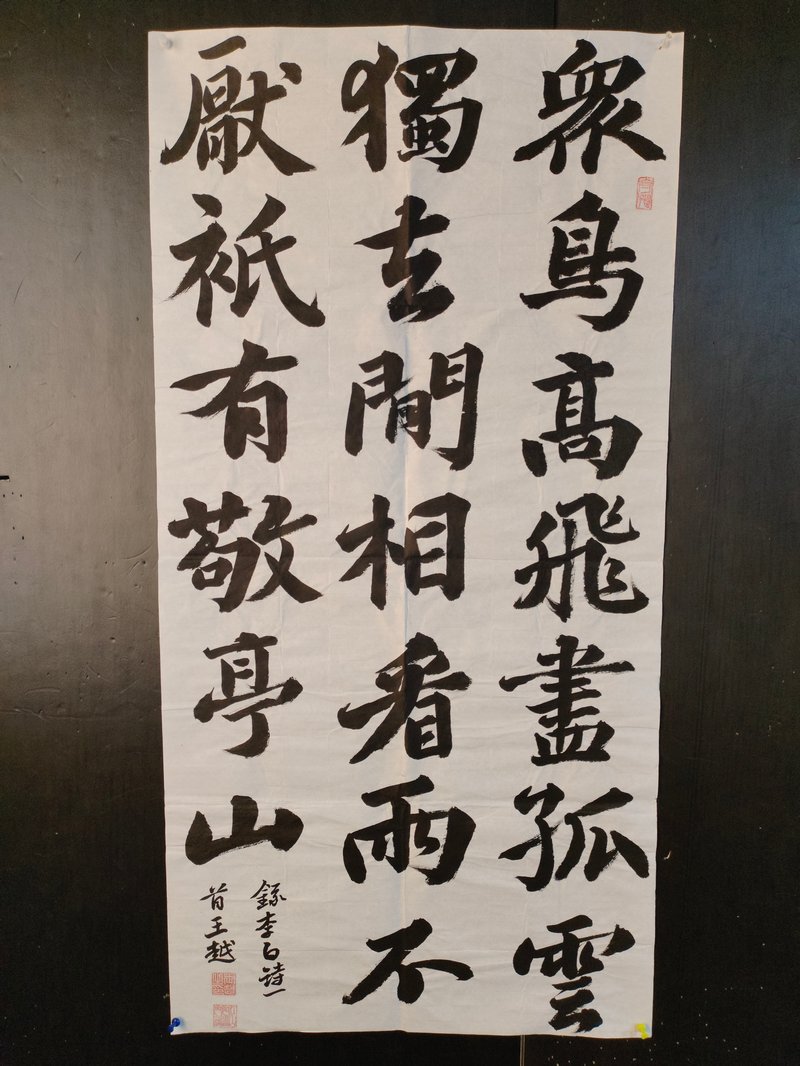 眾鳥高飛盡孤雲
獨去閒相看兩不
厭衹有敬亭山
錄李白詩一
首王越